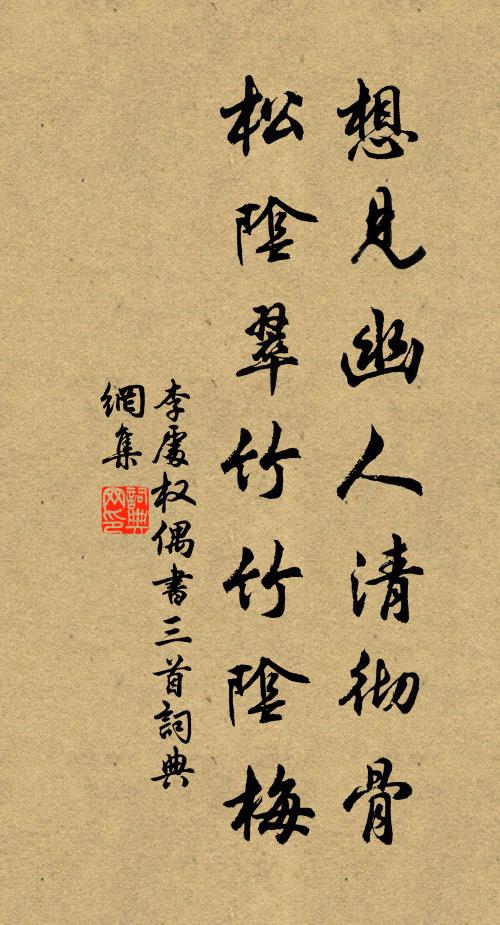 想見幽人清彻骨
松陰翠竹竹陰梅
李處权偶書三首詞典
網集
詞典網印